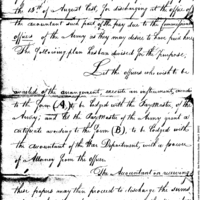 the 15th of August last, for discharging at the office of
the accountant such part of the pay due to the
officers of the Army as they may desire to have paid here
The following plan has been devised for the purpose.
Let the officers who wish to be
of the arrangement, execute an instrument, according
to the Form (A), to be lodged with the PayMaster of the
Army; and let the PayMaster of the Army grant a
certificate according to the Form (B), to be lodged
with the Accountant of the War Department, with a power
of Attorney from the officer
The Accountant on receiving
these papers may then proceed to discharge the sums